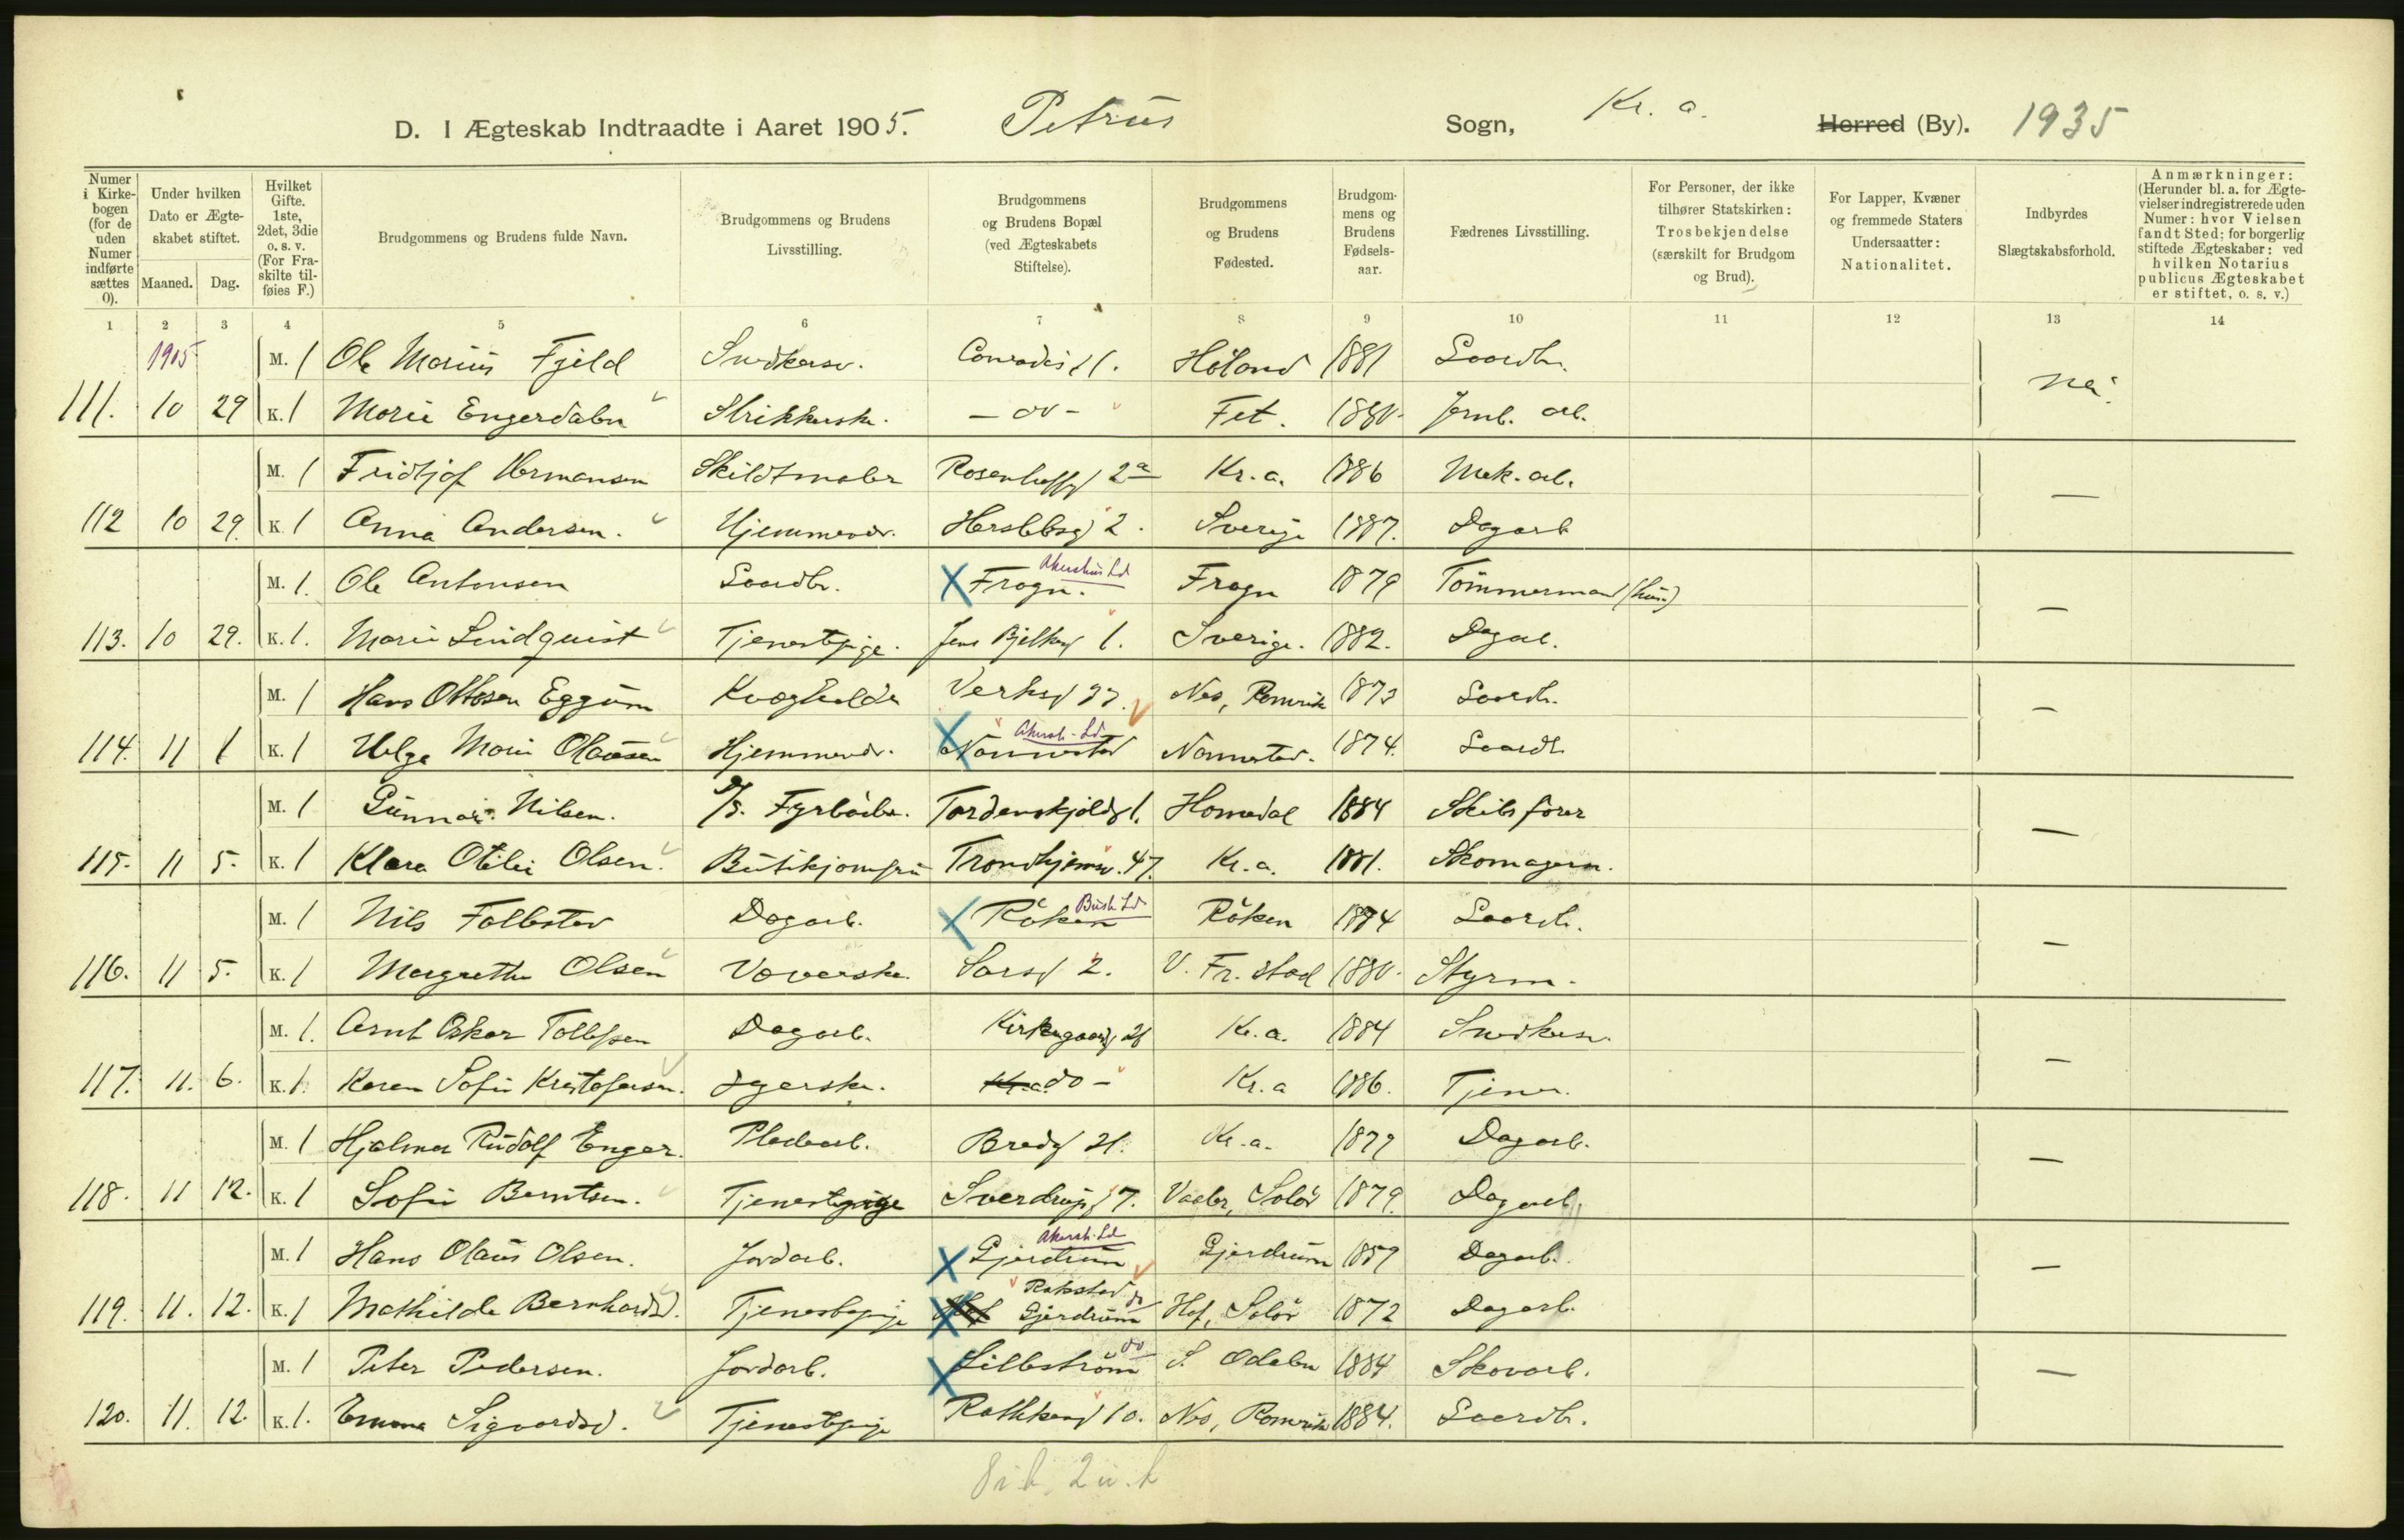 D. I Ægteskab Indtraadte i Aaret 1905. Petrus Sogn, Kr. a. Herred (By). 1935
Numer i Kirkebogen (for de uden Numer indførte sættes 0).
Under hvilken Dato er Ægteskabet stiftet.
Maaned. Dag.
Hvilket Gifte. 1ste, 2det, 3die o. s. v. (For Fraskilte tilføies F.)
Brudgommens og Brudens fulde Navn.
Brudgommens og Brudens Livsstilling.
Brudgommens og Brudens Bopæl (ved Ægteskabets Stiftelse).
Brudgommens og Brudens Fødested.
Brudgommens og Brudens Fødselsaar.
Fædrenes Livsstilling.
For Personer, der ikke tilhører Statskirken: Trosbekjendelse (særskilt for Brudgom og Brud).
For Lapper, Kvæner og fremmede Staters Undersaatter: Nationalitet.
Indbyrdes Slægtskabsforhold.
Anmærkninger: (Herunder bl. a. for Ægtevielser indregistrerede uden Numer: hvor Vielsen fandt Sted; for borgerlig stiftede Ægteskaber: ved hvilken Notarius publicus Ægteskabet er stiftet, o. s. v.)
1 2 3 4 5 6 7 8 9 10 11 12 13 14
1905 M. 1 Ole Marius Fjeld Snedkersv. Conradis g 1. Höland 1881 Gaardbr. nei.
111. 10 29 K. 1 Marie Engerdalen Strikkerske. - do - Fet. 1880. Jernb. arb.
M. 1 Fridtjof Hermansen Skildtmaler Rosenhoffg 2a Kr. a. 1886 Mek. arb. —
112 10 29. K. 1 Anna Andersen. Hjemmevær. Herslebsg 2. Sverige 1887. Dagarb
M. 1. Ole Antonsen Gaardbr. Frogn. Akershus Ld Frogn 1879 Tömmermand (hus) —
113. 10 29. K. 1. Marie Lindquist Tjenestepige. Jens Bjelkesg 1. Sverige. 1882. Dagarb.
M. 1 Hans Ottesen Eggum Kvæghandler Verksg 37. Nes, Romerike 1873 Gaardbr. —
114. 11 1 K. 1 Helga Marie Olausen Hjemmevær. Nannestad Akersh. Ld Nannestad. 1874. Gaardbr.
M. 1 Gunnar Nilsen. D/S. Fyrböder. Tordenskjoldsg 1. Homedal 1884 Skibsförer —
115. 11 5. K. 1 Klara Otilie Olsen. Butikjomfru Trondhjemsv. 47. Kr. a. 1881. Skomagerm.
M. 1 Nils Follestad Dagarb. Röken Busk Ld Röken 1874 Gaardbr. —
116. 11 5. K. 1 Margrethe Olsen Væverske. Sarsg 2. V. Fr. stad 1880. Styrm.
M. 1. Arnt Oskar Tollefsen Dagarb. Kirkegaardsg 26 Kr. a. 1884 Snedkersv. —
117. 11. 6. K. 1. Karen Sofie Kristofersen. Syerske. Kr. a. do - Kr. a 1886. Tjener.
M. 1 Hjalmar Rudolf Enger. Pladearb. Bredg 21. Kr. a. 1879 Dagarb. —
118. 11 12. K. 1 Sofie Berntsen. Tjenestepige Sverdrupsg 7. Vaaler, Solör 1879. Dagarb.
M. 1 Hans Olaus Olsen. Jordarb. Gjerdrum Akersh. Ld Gjerdrum 1859 Dagarb. —
119. 11. 12. K. 1 Mathilde Bernhardsd. Tjenestepige Hof Gjerdrum do Hof, Solör 1872 Dagarb.
M. 1 Peter Pedersen. Jordarb. Lilleström do S. Odalen 1884 Skovarb. —
120. 11. 12. K. 1. Emma Sigvardsd. Tjenestepige Rathkesg 10. Nes, Romerike 1884. Gaardbr.
8 i b. 2 u. b